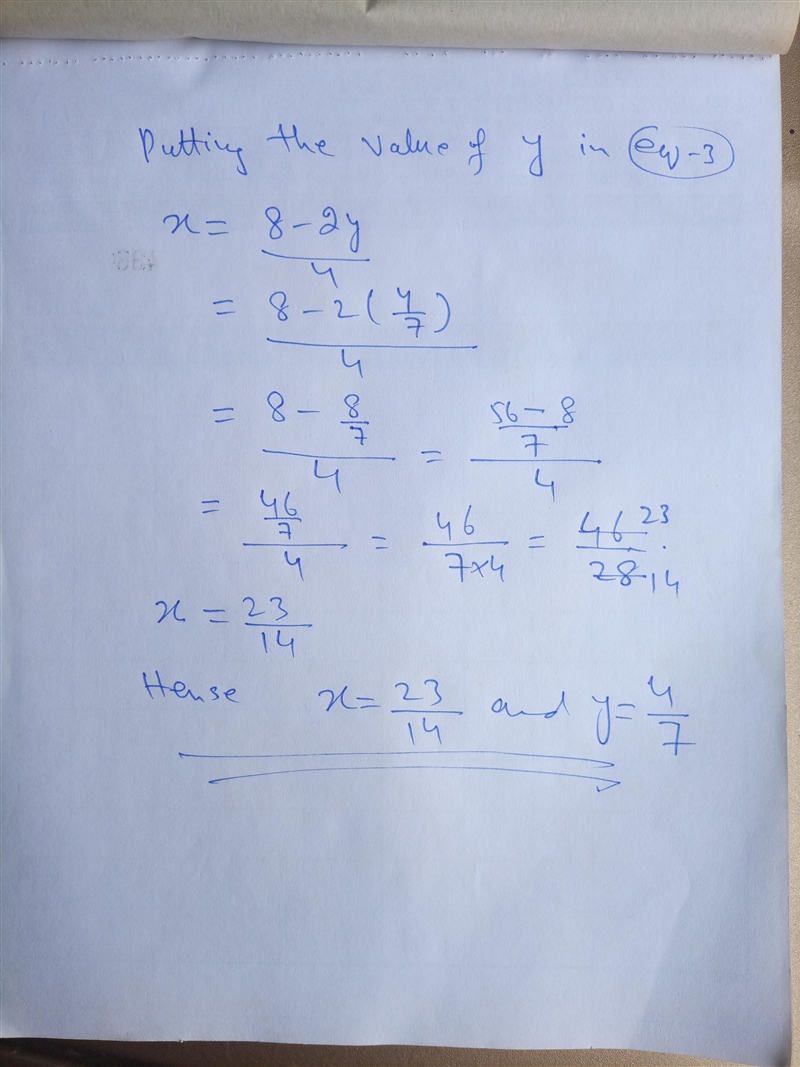 Putting the value of y in eq-3
x = 8 - 2y / 4
= 8 - 2 ( 4/7 ) / 4
= 8 - 8/7 / 4 = 56 - 8 / 7 / 4
= 46/7 / 4 = 46 / 7×4 = 46 23 / 28 14
x = 23/14
Hense x = 23/14 and y = 4/7